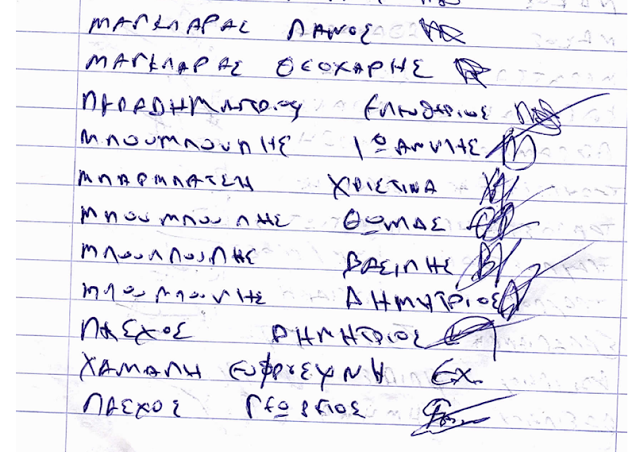 ΜΑΓΚΛΑΡΑΣ ΠΑΝΟΣ
ΜΑΓΚΛΑΡΑΣ ΘΕΟΧΑΡΗΣ
ΠΑΠΑΔΗΜΗΤΡΙΟΥ ΕΛΕΥΘΕΡΙΟΣ
ΜΠΟΥΜΠΟΥΛΗΣ ΙΩΑΝΝΗΣ
ΜΠΑΡΜΠΑΤΣΗ ΧΡΙΣΤΙΝΑ
ΜΠΟΥΜΠΟΥΛΗΣ ΘΩΜΑΣ
ΜΠΟΥΜΠΟΥΛΗΣ ΒΑΣΙΛΗΣ
ΜΠΟΥΜΠΟΥΛΗΣ ΔΗΜΗΤΡΙΟΣ
ΠΑΣΧΟΣ ΔΗΜΗΤΡΙΟΣ
ΧΑΜΑΛΗ ΕΥΦΡΟΣΥΝΗ ΕΧ.
ΠΑΣΧΟΣ ΓΕΩΡΓΙΟΣ